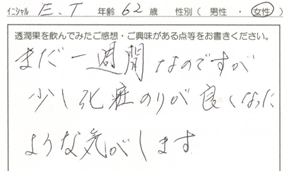 イニシャル E.T 年齢 62 歳 性別（ 男性 ・ 女性 ）
透潤果を飲んでみたご感想・ご興味がある点等をお書きください。
まだ一週間なのですが
少し化粧のりが良くなった
ような気がします